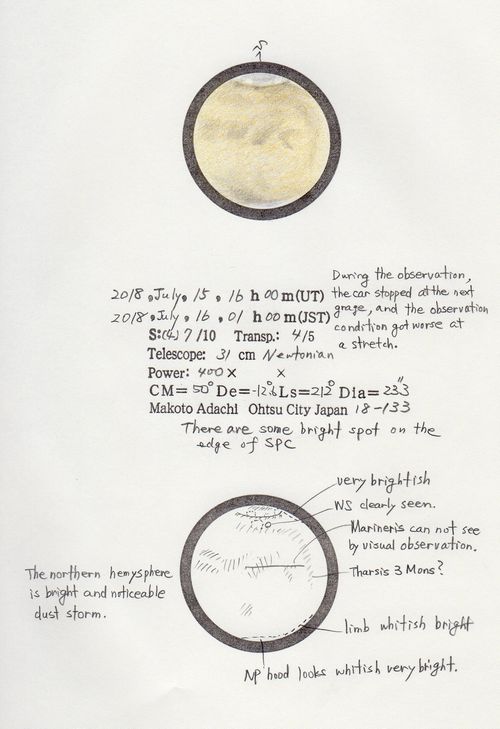 S
During the observation,
the car stopped at the next
grage, and the observation
condition got worse at
a stretch.
2018, July, 15, 16 h 00 m (UT)
2018, July, 16, 01 h 00 m (JST)
S: (4) 7/10 Transp.: 4/5
Telescope: 31 cm Newtonian
Power: 400 × ×
CM= 50° De= -12.°6 Ls= 212° Dia= 23."3
Makoto Adachi Ohtsu City Japan 18-133
There are some bright spot on the
edge of SPC
very brightish
WS clearly seen.
Marineris can not see
by visual observation.
Tharsis 3 Mons?
The northern hemysphere
is bright and noticeable
dust storm.
limb whitish bright
NP hood looks whitish very bright.